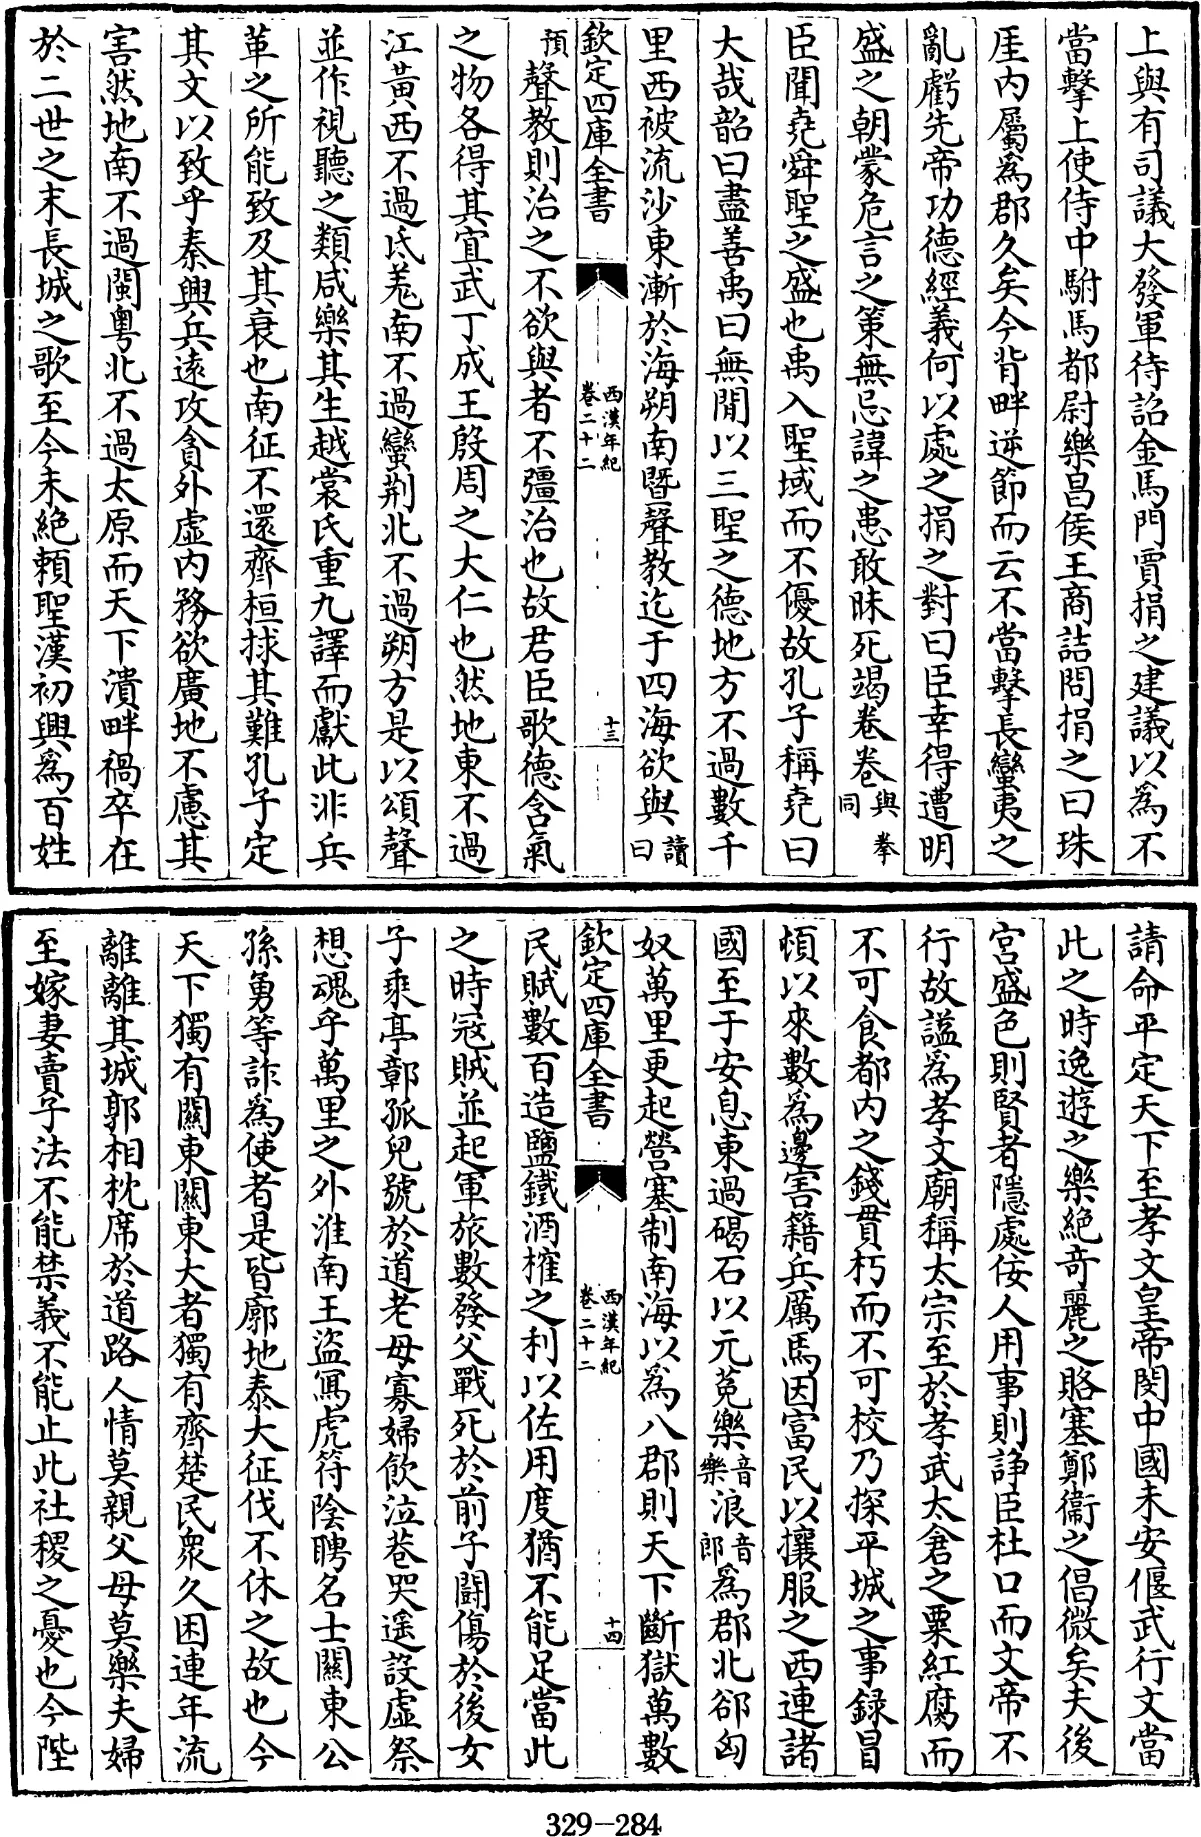 上與有司議大發軍待詔金馬門賈捐之建議以為不
當擊上使侍中駙馬都尉樂昌侯王商詰問捐之曰珠
厓内屬為郡久矣今背畔逆節而云不當擊長蠻夷之
亂虧先帝功德經義何以處之捐之對曰臣幸得遭明
盛之朝蒙危言之策無忌諱之患敢昧死竭卷卷與拳同
臣聞堯舜聖之盛也禹入聖域而不優故孔子稱堯曰
大哉韶曰盡善禹曰無閒以三聖之德地方不過數千
里西被流沙東漸於海朔南暨聲教迄于四海欲與讀曰
欽定四庫全書
西漢年紀
卷二十二
十三
預聲教則治之不欲與者不彊治也故君臣歌德含氣
之物各得其宜武丁成王殷周之大仁也然地東不過
江黄西不過氐羗南不過蠻荆北不過朔方是以頌聲
並作視聽之類咸樂其生越裳氏重九譯而獻此非兵
革之所能致及其衰也南征不還齊桓捄其難孔子定
其文以致乎秦興兵逺攻貪外虚内務欲廣地不慮其
害然地南不過閩粤北不過太原而天下潰畔禍卒在
於二世之末長城之歌至今未絶賴聖漢初興為百姓
請命平定天下至孝文皇帝閔中國未安偃武行文當
此之時逸遊之樂絶奇麗之賂塞鄭衞之倡微矣夫後
宮盛色則賢者隱處佞人用事則諍臣杜口而文帝不
行故諡為孝文廟稱太宗至於孝武太倉之粟紅腐而
不可食都内之錢貫朽而不可校乃探平城之事録冒
頓以來數為邊害籍兵厲馬因富民以攘服之西連諸
國至于安息東過碣石以元菟樂音樂浪音郎為郡北郤匈
奴萬里更起營塞制南海以為八郡則天下斷獄萬數
欽定四庫全書
西漢年紀
卷二十二
十四
民賦數百造鹽鐵酒榷之利以佐用度猶不能足當此
之時冦賊並起軍旅數發父戰死於前子鬬傷於後女
子乘亭鄣孤兒號於道老母寡婦飲泣巷哭遥設虚祭
想魂乎萬里之外淮南王盜冩虎符隂聘名士關東公
孫勇等詐為使者是皆廓地泰大征伐不休之故也今
天下獨有關東關東大者獨有齊楚民衆久困連年流
離離其城郭相枕席於道路人情莫親父母莫樂夫婦
至嫁妻賣子法不能禁義不能止此社稷之憂也今陛
329-284